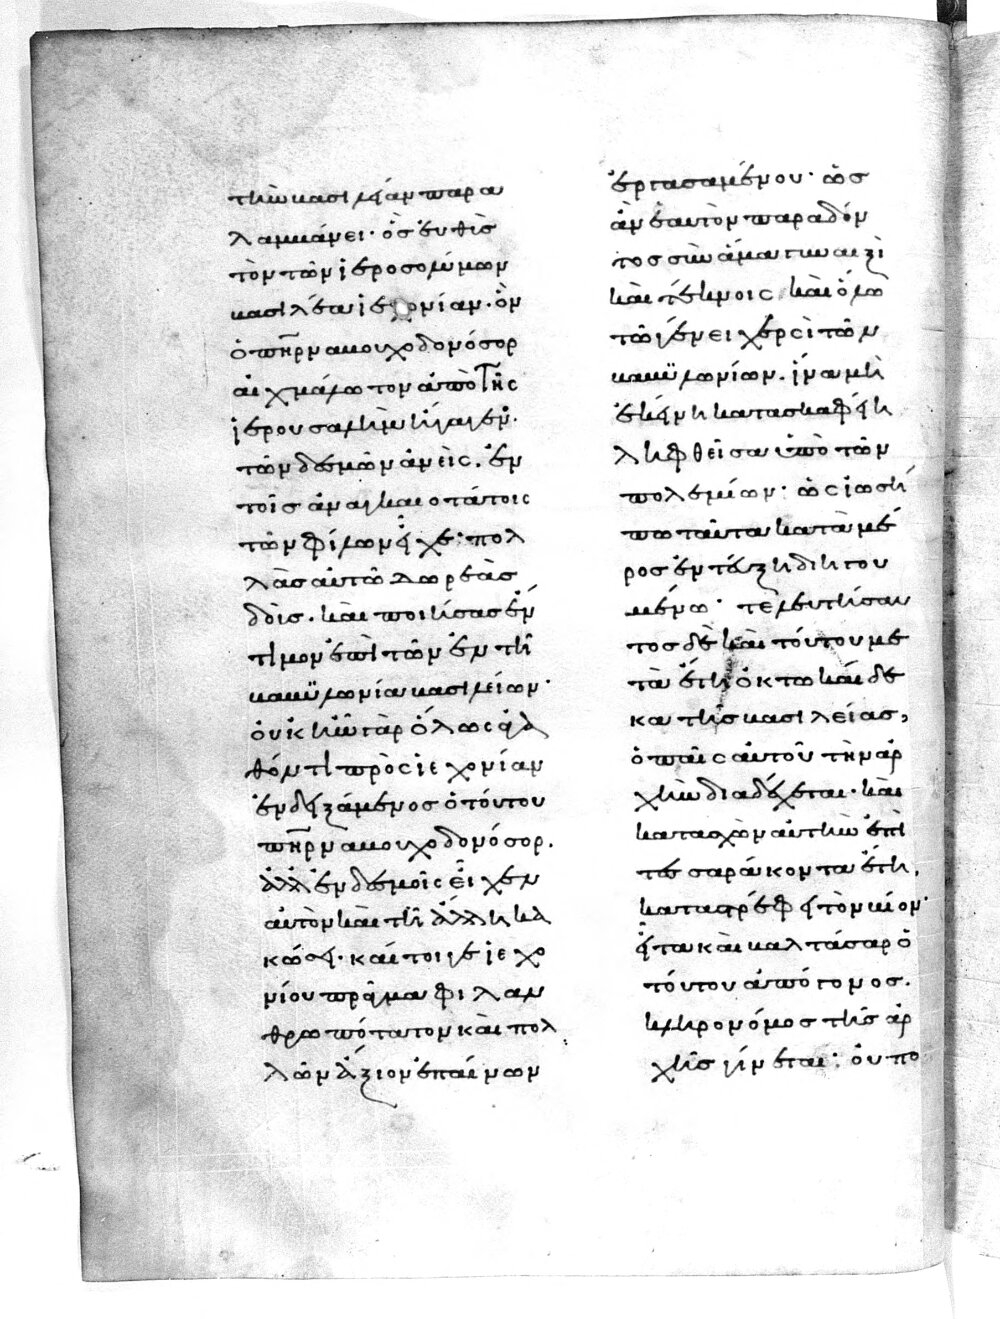 τὴν βασιλείαν παρα
λαμβάνει· ὃς εὐθὺς
τὸν τῶν ἱεροσολύμων
βασιλέα ἰεχονίαν· ὃν
ὁ πὴρ ναβουχοδονόσορ
αἰχμάλωτον ἀπὸ τῆς
ἱερουσαλὴμ ἤγαγεν·
τῶν δεσμῶν ἀνεὶς. ἐν
τοῖς ἀναγκαιοτάτοις
τῶν φίλων εἶχε· πολ
λὰς αὐτῶ δωρεὰς
δοὺς. καὶ ποιήσας ἔν
τιμον ἐπὶ τῶν ἐν τῆ
βαβυλωνία βασιλείων·
οὐκ ἦν γὰρ ὅλως ἐλ
θόντι πρὸς ἰεχονίαν
ἐνδειξάμενος ὁ τούτου
πὴρ ναβουχοδονόσορ.
ἀλλ' ἐν δεσμοῖς εἶχεν
αὐτὸν καὶ τῆ ἄλλη κα
κώσει· καί τοι γε ἰεχο
νίου πρᾶγμα φιλαν
θρωπότατον καὶ πολ
λῶν ἄξιον ἐπαίνων
ἐργασαμένου· ὡς
ἂν ἑαυτὸν παραδόν
τος σὺν ἅμα γυναιξὶ
καὶ τέκνοις καὶ ὅλω
τῶ γένει χερσὶ τῶν
βαβυλωνίων. ἵνα μὴ
ἐκείνη κατασκαφείη
ληφθεῖσα ὑπὸ τῶν
πολεμίων· ὡς ἰωσή
πω ταῦτα κατὰ μέ
ρος ἐν τάξει διηγου
μένω· τελευτήσαν
τος δὲ καὶ τούτου με
τὰ ἔτη ὀκτωκαίδε
κα τῆς βασιλείας,
ὁ παῖς αὐτοῦ τὴν ἀρ
χὴν διαδέχεται· καὶ
κατασχὼν αὐτὴν ἐπὶ
τεσσαράκοντα ἔτη,
καταστρέφει τὸν βίον·
εἶτα καὶ βαλτάσαρ ὁ
τούτου ἀπόγονος.
κληρονόμος τῆς ἀρ
χῆς γίνεται· οὗ πο